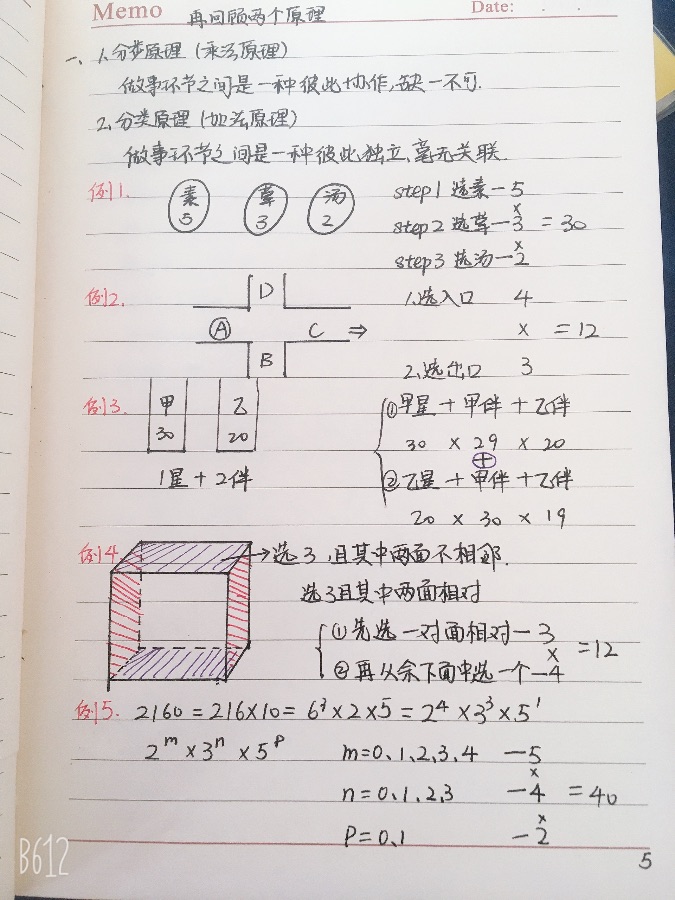 Memo 再回顾两个原理 Date: . .
一、1.分类原理 (乘法原理)
做事环节之间是一种彼此协作,缺一不可.
2.分类原理 (加法原理)
做事环节之间是一种彼此独立,毫无关联.
例1. 素 5 荤 3 汤 2 step1 选素-5
×
step2 选荤-3 = 30
×
step3 选汤-2
例2. D 1.选入口 4
A C ⇒ × =12
B 2.选出口 3
例3. 甲 30 乙 20 ①甲星+甲伴+乙伴
30 × 29 × 20
⊕
1星+2伴 ②乙星+甲伴+乙伴
20 × 30 × 19
例4 →选3,且其中两面不相邻.
选3且其中两面相对
①先选一对面相对-3
× =12
②再从余下面中选一个-4
例5. 2160=216×10=6³×2×5=2⁴×3³×5¹
2ᵐ×3ⁿ×5ᵖ m=0、1、2、3、4 -5
×
n=0、1、2、3 -4 =40
×
P=0、1 -2
B612
5